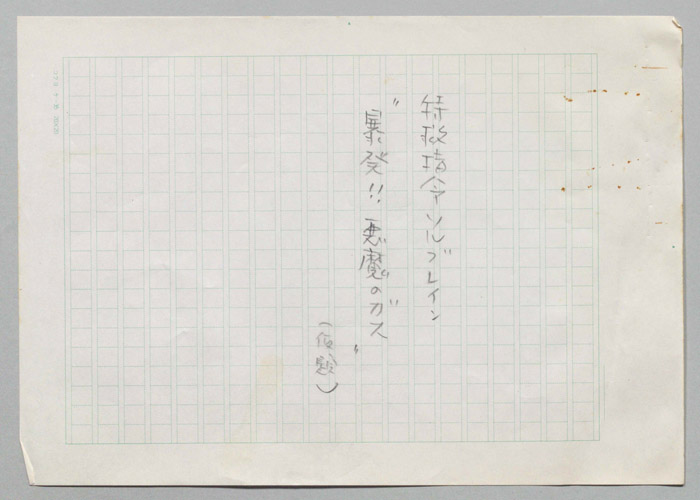 特救指令ソルブレイン
"暴発!!悪魔のガス"
(仮題)